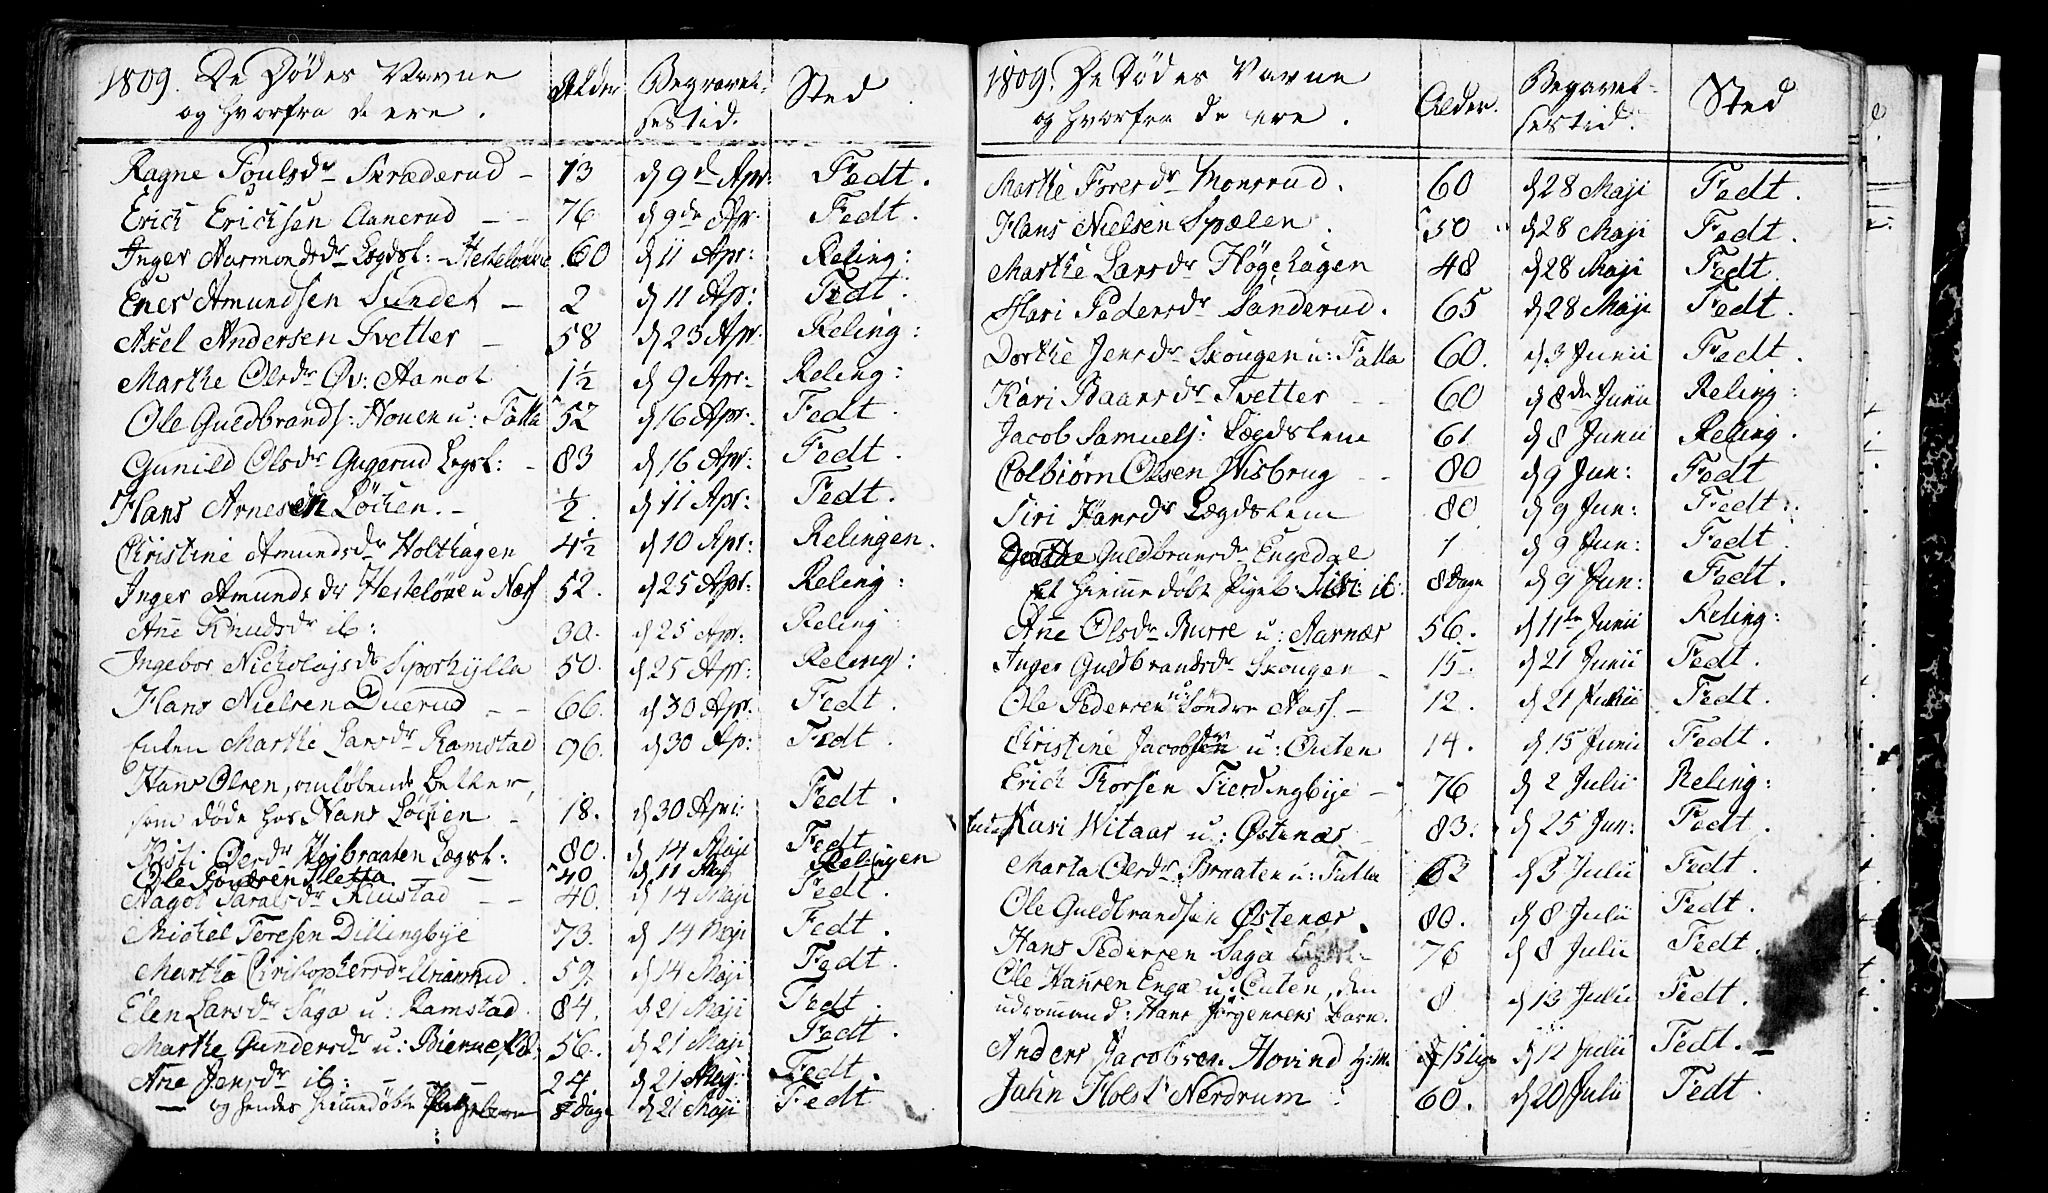 1809. De Dødes Navne Alder Begravel- Sted
og hvorfra de ere. sestid.
Ragne Poulsdr Skræderud - 73 d 9d Apr: Fedt.
Erich Ericksen Aanerud - - 76 d 9de Ap: Fedt.
Inger Aarmondsdr Lægdsl: - Hekeløkke 60 d 11 Apr: Reling:
Ener Amundsen Sundet - 2 d 11 Ap: Fedt.
Axel Andersen Tvetter - 58 d 23 Apr: Reling:
Marthe Olsdr Øv: Aamot 1½ d 9 Apr: Reling:
Ole Guldbrands: Houen u: Talla 52 d 16 Apr: Fedt.
Gunild Olsdr Gugerud Lægsl: - 83 d 16 Apr: Fedt.
Hans Arnesen Løchen. - ½. d 11 Apr: Fedt.
Christine Amundsdr Holthagen 4½ d 10 Apr: Relingen.
Inger Amunds dr Hekeløue u Næss 52. d 25 Apr: Reling:
Ane Knudsdr ib: 30. d 25 Apr: Reling:
Ingebor Nickolajsdr Siporhylla 50. d 25 Apr: Reling:
Hans Nielsen Duerud - - 66. d 30 Apr: Fedt.
Enken Marthe Larsdr Ramstad 96. d 30 Ap: Fedt.
Hans Olsen, omløbende Betler,
som døde hos Hans Løchen - 18. d 30 Apri: Fedt.
Kisti Olersdr Højbraaten Lægsl: 80. d 14 Maji Fedt
Ole Poulsen Sletta - - 40 d 11 Maj Relingen
Aagot Taralsdr Knustad - - 40. d 14 Maji Fedt.
Michel Toresen Dillingbye 73. d 14 Maji Fedt.
Marthe Christophersdr Uriansrud. 59. d 14 Maji Fedt.
Elen Larsdr Saga u: Ramstad. 84. d 21 Maji Fedt.
Marthe Gundersdr u: Bierne 56. d 21 Maji Fedt.
Ane Jensdr ib: - - - 24 d 21 Maj: Fedt.
og hendes hiemmedøbte Pigebarn 8 Dage d 21 Maji Fedt
1809. De Dødes Navne Alder. Begavel- Sted
og hvorfra de ere. sestid.
Marthe Toresdr Monsrud. 60 d 28 Maji Fedt.
Hans Nielsen Spælen. 50 d 28 Maji Fedt.
Marthe Larsdr Høgehagen 48 d 28 Maji Fedt.
Mari Pedersdr Sanderud. 65 d 28 Maji Fedt.
Dorthe Jensdr Skougen u: Talla 60. d 3 Junii Fedt.
Kari Baarsdr Tvetter - - 60 d 8de Junii Reling:
Jacob Samuels: Lægdslem 61 d 8 Junii Reling.
Colbiørn Olsen Wisbrug - - 80 d 9 Jun: Fedt
Siri Hansdr Lægdslem 80 d 9 Jun: Fedt:
Dorthe Guldbransdr Engedal 1 d 9 Jun: Fedt.
Et hiemmedøbt Pigeb: Siri ib: 8 Dage d 9 Jun: Fedt.
Ane Olsdr Burre u: Aarnæs 56. d 11te Junii Reling:
Inger Guldbrandsdr Skougen - 15 - d 21 Junii Fedt.
Ole Pedersen u: Søndre Aass - 12. d 21 Junii Fedt.
Christine Jacobsdr u: Outen 14. d 15 Junii Fedt.
Erich Thorsen Fierdingbye - 76 d 2 Julii Reling:
Enken Kari Witaar u: Østenæs 83. d 25 Jun: Fedt.
Marta Olersdr Braaten u: Talla 62 d 3 Julii Fedt.
Ole Guldbrandsen Østenær. 80. d 8 Julii Fedt.
Hans Pedersen Saga - 76 d 8 Julii Fedt.
Ole Hansen Enga u: Outen, den
udrommand: Hans Jørgensens Barn. 8 d 13 Julii Fedt.
Anders Jacobsen Hovind 15 d 12 Julii Fedt. -
Jahn Holst Nerdrum : 60. d 20 Julii Fedt.